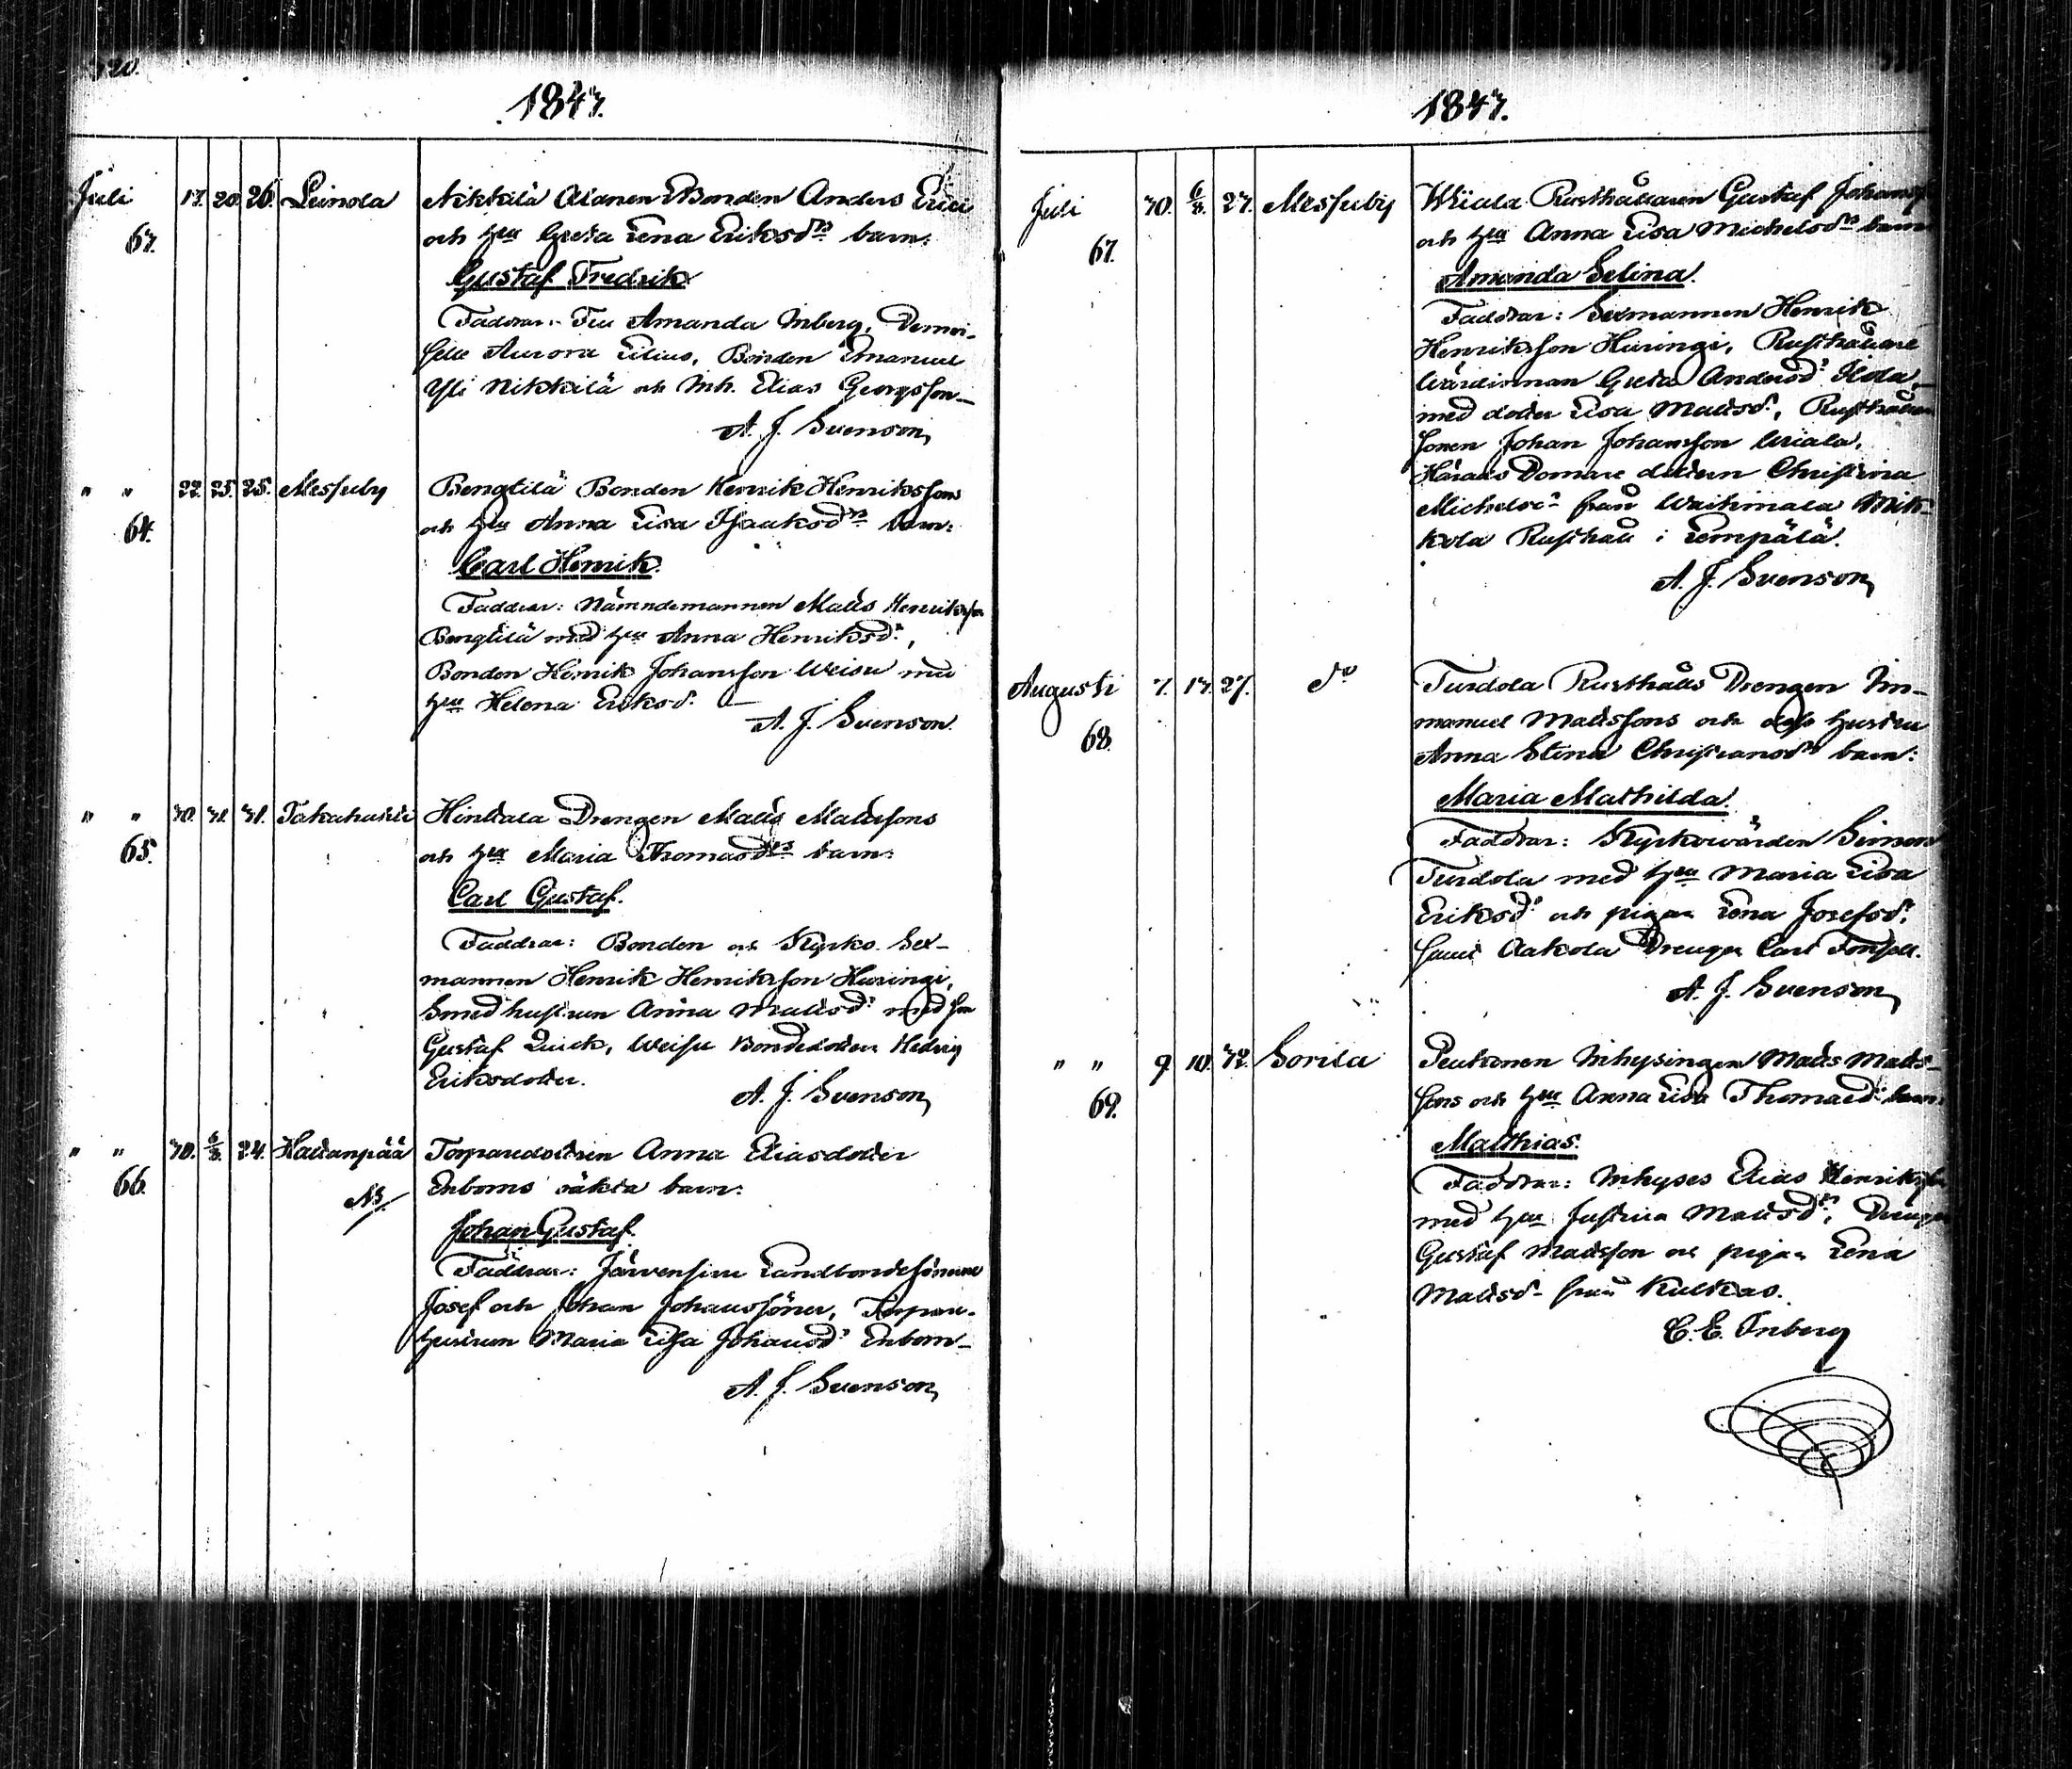 320.
1847.
Juli 17. 20. 26. Leinola Nikkilä Alanen Bonden Anders Erici
63. och hu Greta Lena Eriksdrs barn:
Gustaf Fredrik
Faddrar: Fru Amanda Inberg, Demoi-
selle Aurora Lilius, Bonden Emanuel
Yli Nikkilä och Inh. Elias Georgsson
A. J. Svenson
" " 22. 25. 25. Messuby Bengtilä Bonden Henrik Henrikssons
64. och hu Anna Lisa Isaaksdrs barn:
Carl Henrik.
Faddrar: Nämndemannen Matts Henriksson
Bengtilä med hu Anna Henriksdr,
Bonden Henrik Johansson Weisu med
hu Helena Eriksdr.
A. J. Svenson
" " 30. 31. 31. Takahuhti Hintsala Drengen Matts Mattssons
65. och hu Maria Thomasdrs barn:
Carl Gustaf.
Faddrar: Bonden och Kyrko Sex-
mannen Henrik Henriksson Huringi,
Smedhustrun Anna Mattsdr med son
Gustaf Quick, Weisu Bondedottern Hedvig
Eriksdotter.
A. J. Svenson
" " 30. 6/8. 24. Hattanpää Torparedottren Anna Eliasdotter
66. NB Enboms oäkta barn:
Johan Gustaf.
Faddrar: Järvensivu Landbondesönerne
Josef och Johan Johanssöner, Torpare-
hustrun Maria Lisa Johansdr Enbom
A. J. Svenson
1847.
Juli 30. 6/8. 27. Messuby Wiiala Rusthållaren Gustaf Johanss
67. och hu Anna Lisa Michelsdrs barn
Amanda Selina.
Faddrar: Sexmannen Henrik
Henriksson Huringi, Rusthållare
Wärdinnan Greta Andersdr Ilola
med dotter Lisa Mattsdr, Rusthållare
sonen Johan Johansson Wiiala,
Härads Domare dottern Christina
Michelsdr från Waihmala Mik-
kola Rusthåll i Lempälä.
A. J. Svenson
Augusti 7. 13. 27. do Turtola Rusthålls Drengen Im-
68. manuel Mattssons och dess hustru
Anna Stina Christiansdrs barn:
Maria Mathilda.
Faddrar: Kyrkowärden Simon
Turtola med hu Maria Lisa
Eriksdr och pigan Lena Josefsdr.
samt Aakola Drengen Carl Fonsell.
A. J. Svenson
" " 9. 10. 32. Sorila Penttonen Inhysingen Matts Matts-
69. sons och hu Anna Lisa Thomasdr barn:
Matthias.
Faddrar: Inhyses Elias Henriksson
med hu Justina Mattsdr, Drengen
Gustaf Mattsson och pigan Lena
Mattsdr från Kulkas.
C. E. Inberg